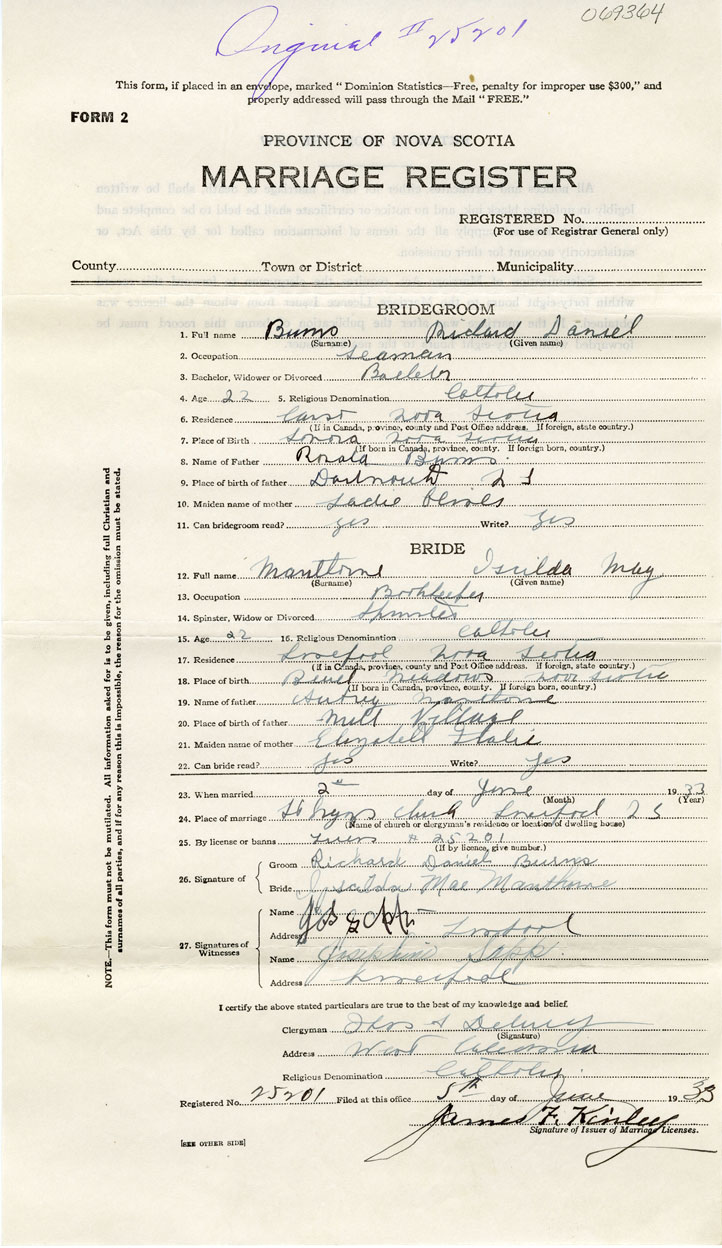 Original # 25201
069364
This form, if placed in an envelope, marked "Dominion Statistics—Free, penalty for improper use $300," and
properly addressed will pass through the Mail "FREE."
FORM 2
PROVINCE OF NOVA SCOTIA
MARRIAGE REGISTER
REGISTERED No.
(For use of Registrar General only)
County Town or District Municipality
BRIDEGROOM
1. Full name Burns Richard Daniel
(Surname) (Given name)
2. Occupation Seaman
3. Bachelor, Widower or Divorced Bachelor
4. Age 22 5. Religious Denomination Catholic
6. Residence Canso Nova Scotia
(If in Canada, province, county and Post Office address. If foreign, state country.)
7. Place of Birth Sonora Nova Scotia
(If born in Canada, province, county. If foreign born, country.)
8. Name of Father Ronald Burns
9. Place of birth of father Dartmouth N S
10. Maiden name of mother Sadie
11. Can bridegroom read? yes Write? yes
BRIDE
12. Full name Manthorne Isilda May
(Surname) (Given name)
13. Occupation Bookkeeper
14. Spinster, Widow or Divorced Spinster
15. Age 22 16. Religious Denomination Catholic
17. Residence Liverpool Nova Scotia
(If in Canada, province, county and Post Office address. If foreign, state country.)
18. Place of birth Beach Meadows Nova Scotia
(If born in Canada, province, county. If foreign born, country.)
19. Name of father Aubrey Manthorne
20. Place of birth of father Mill Village
21. Maiden name of mother Elizabeth
22. Can bride read? yes Write? yes
23. When married 2nd day of June 1933
(Month) (Year)
24. Place of marriage St Church Liverpool N S
(Name of church or clergyman's residence or location of dwelling house)
25. By license or banns # 25201
(If by licence, give number.)
26. Signature of
Groom Richard Daniel Burns
Bride Mae Manthorne
27. Signatures of Witnesses
Name
Address Liverpool
Name Josephine
Address Liverpool
I certify the above stated particulars are true to the best of my knowledge and belief.
Clergyman
(Signature)
Address West Caledonia
Religious Denomination Catholic
Registered No. 25201 Filed at this office 5th day of June 1933
James F. Kinley
Signature of Issuer of Marriage Licenses.
[SEE OTHER SIDE]
NOTE.—This form must not be mutilated. All information asked for is to be given, including full Christian and
surnames of all parties, and if for any reason this is impossible, the reason for the omission must be stated.